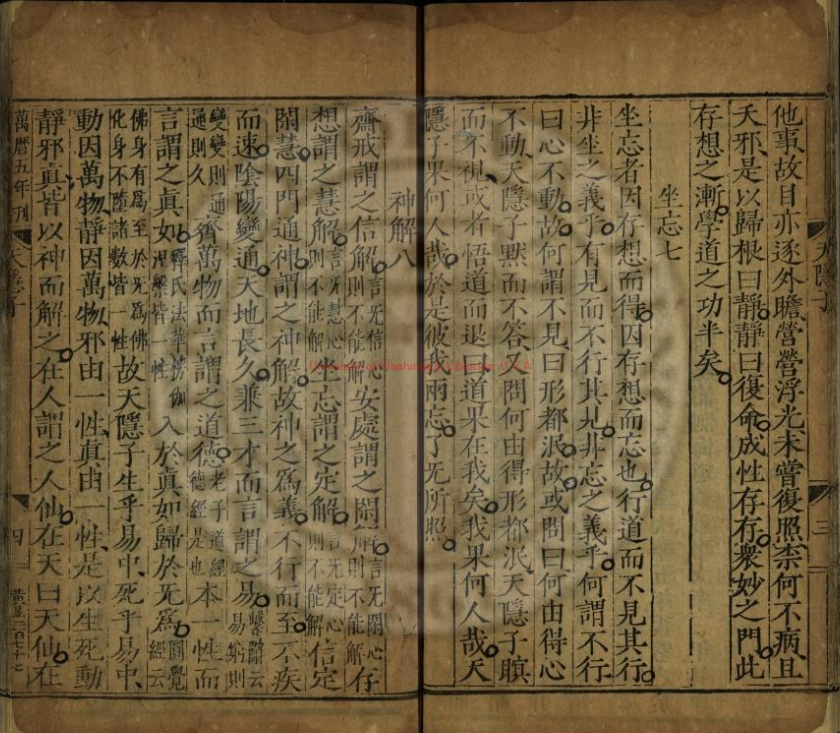 他事故目亦逐外瞻營營浮光未嘗復照柰何不病且
夭邪是以歸根曰靜靜曰復命成性存存衆妙之門此
存想之漸學道之功半矣
坐忘七
坐忘者因存想而得因存想而忘也行道而不見其行
非坐之義乎有見而不行其見非忘之義乎何謂不行
曰心不動故何謂不見曰形都泯故或問曰何由得心
不動天隱子黙而不答又問何由得形都泯天隱子瞑
而不視或者悟道而退曰道果在我矣我果何人哉天
隱子果何人哉於是彼我兩忘了无所照
神解八
齋戒謂之信解言无信心則不能解安處謂之閑解言无閑心則不能解存
想謂之慧解言无慧心則不能解坐忘謂之定解言无定心則不能解信定
閑慧四門通神謂之神解故神之爲義不行而至不疾
而速陰陽變通天地長久兼三才而言謂之易繫辭云易窮則
變變則通通則久齊萬物而言謂之道德老子道經德經是也本一性而
言謂之真如釋氏法華楞伽涅槃皆一性入於真如歸於无爲圓覺經云
佛身有爲至於无爲佛化身不隨諸數皆一性故天隱子生乎易中死乎易中
動因萬物靜因萬物邪由一性真由一性是以生死動
靜邪真皆以神而解之在人謂之人仙在天曰天仙在
天隱子
三
萬曆五年刊
天隱子
四